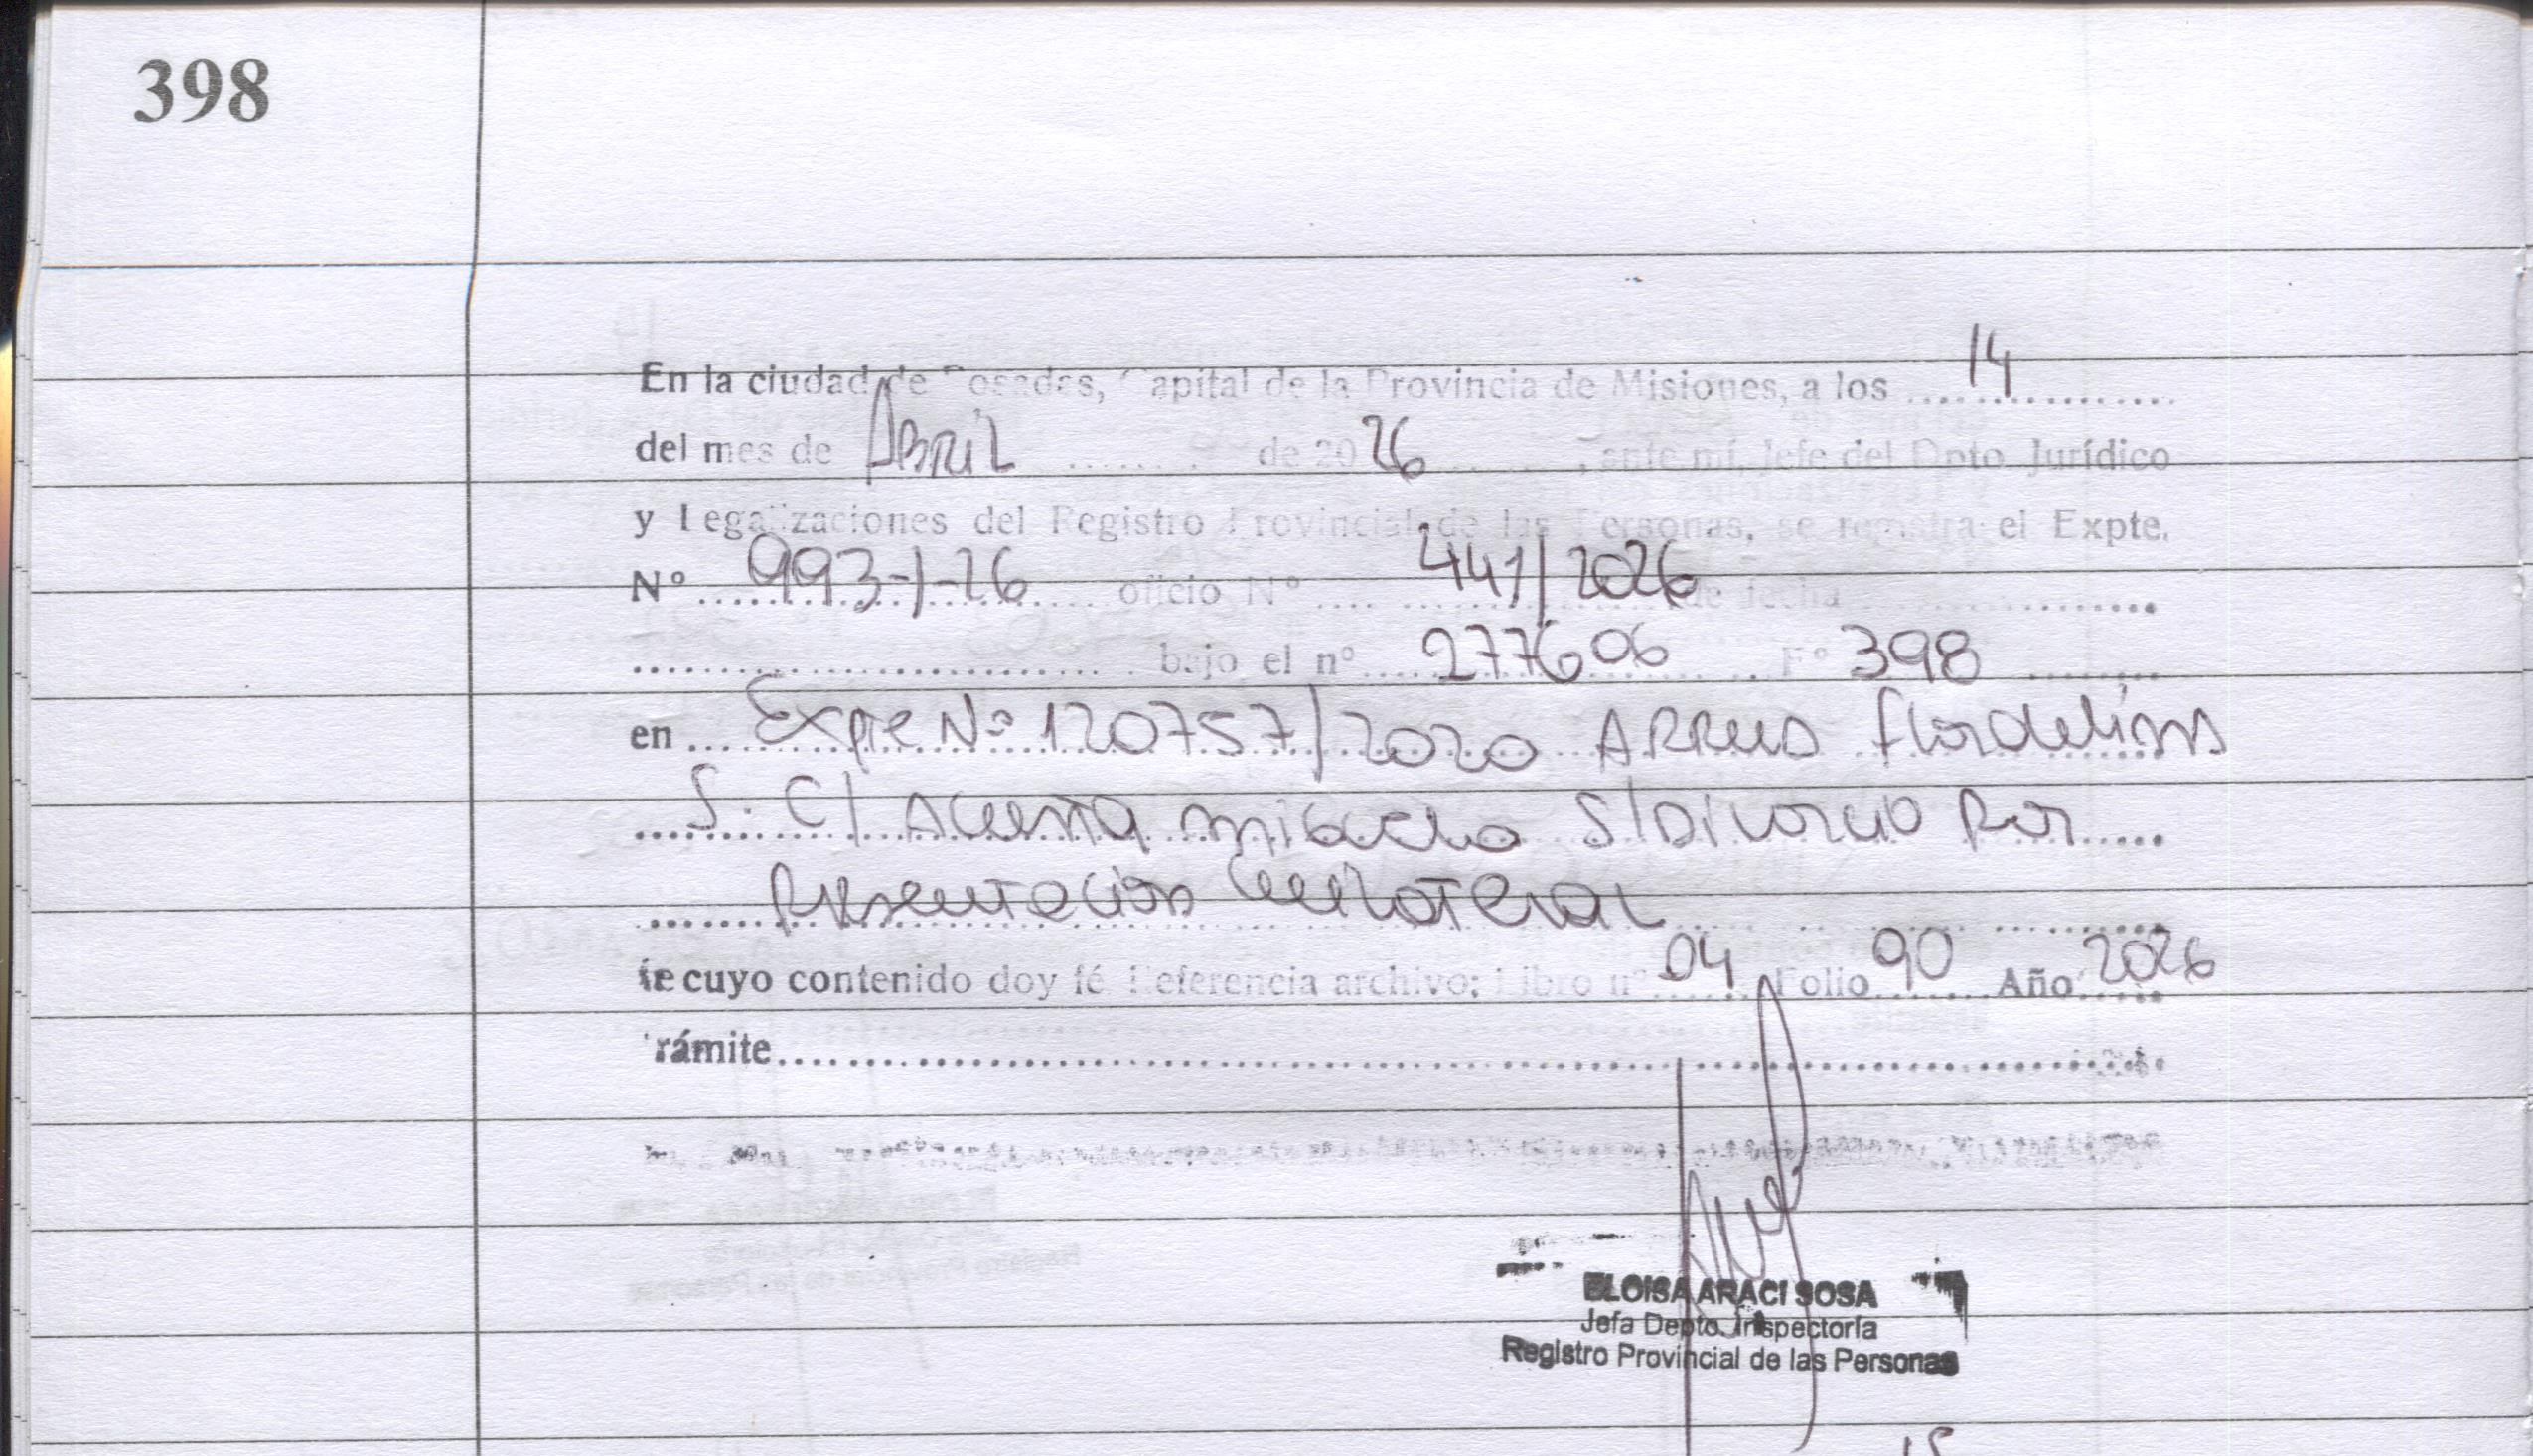 398
En la ciudad de Posadas, Capital de la Provincia de Misiones, a los 14
del mes de Abril de 2026, ante mí, Jefe del Dpto Jurídico
y Legalizaciones del Registro Provincial de las Personas, se registra el Expte.
Nº 993-J-26 oficio Nº 441/2026 de fecha
bajo el nº 277606 Fº 398
en Expte Nº 120757/2020
S. C/ S/Divorcio Por
Presentacion Unilateral
de cuyo contenido doy fé Referencia archivo: Libro nº 04 Folio 90 Año 2026
rámite
ELOISA ARACI SOSA
Jefa Depto. Inspectoría
Registro Provincial de las Personas
15